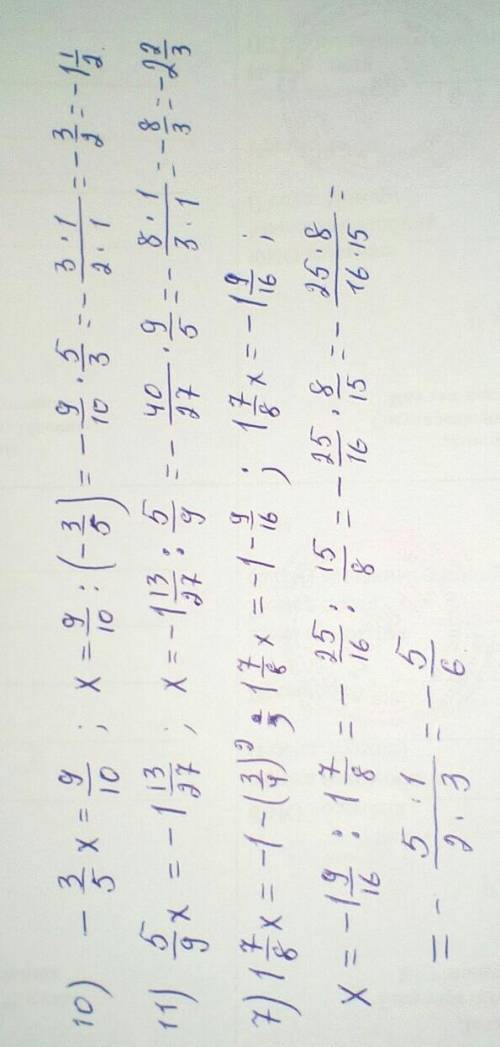 10) -3/5 x = 9/10 ; x = 9/10 : (-3/5) = -9/10 · 5/3 = - 3·1/2·1 = -3/2 = -1 1/2
11) 5/9 x = -1 13/27 ; x = -1 13/27 : 5/9 = - 40/27 · 9/5 = - 8·1/3·1 = -8/3 = -2 2/3
7) 1 7/8 x = -1 - (3/4)² ; 1 7/8 x = -1 - 9/16 ; 1 7/8 x = -1 9/16 ;
x = -1 9/16 : 1 7/8 = - 25/16 : 15/8 = - 25/16 · 8/15 = - 25·8/16·15 =
= - 5·1/2·3 = - 5/6